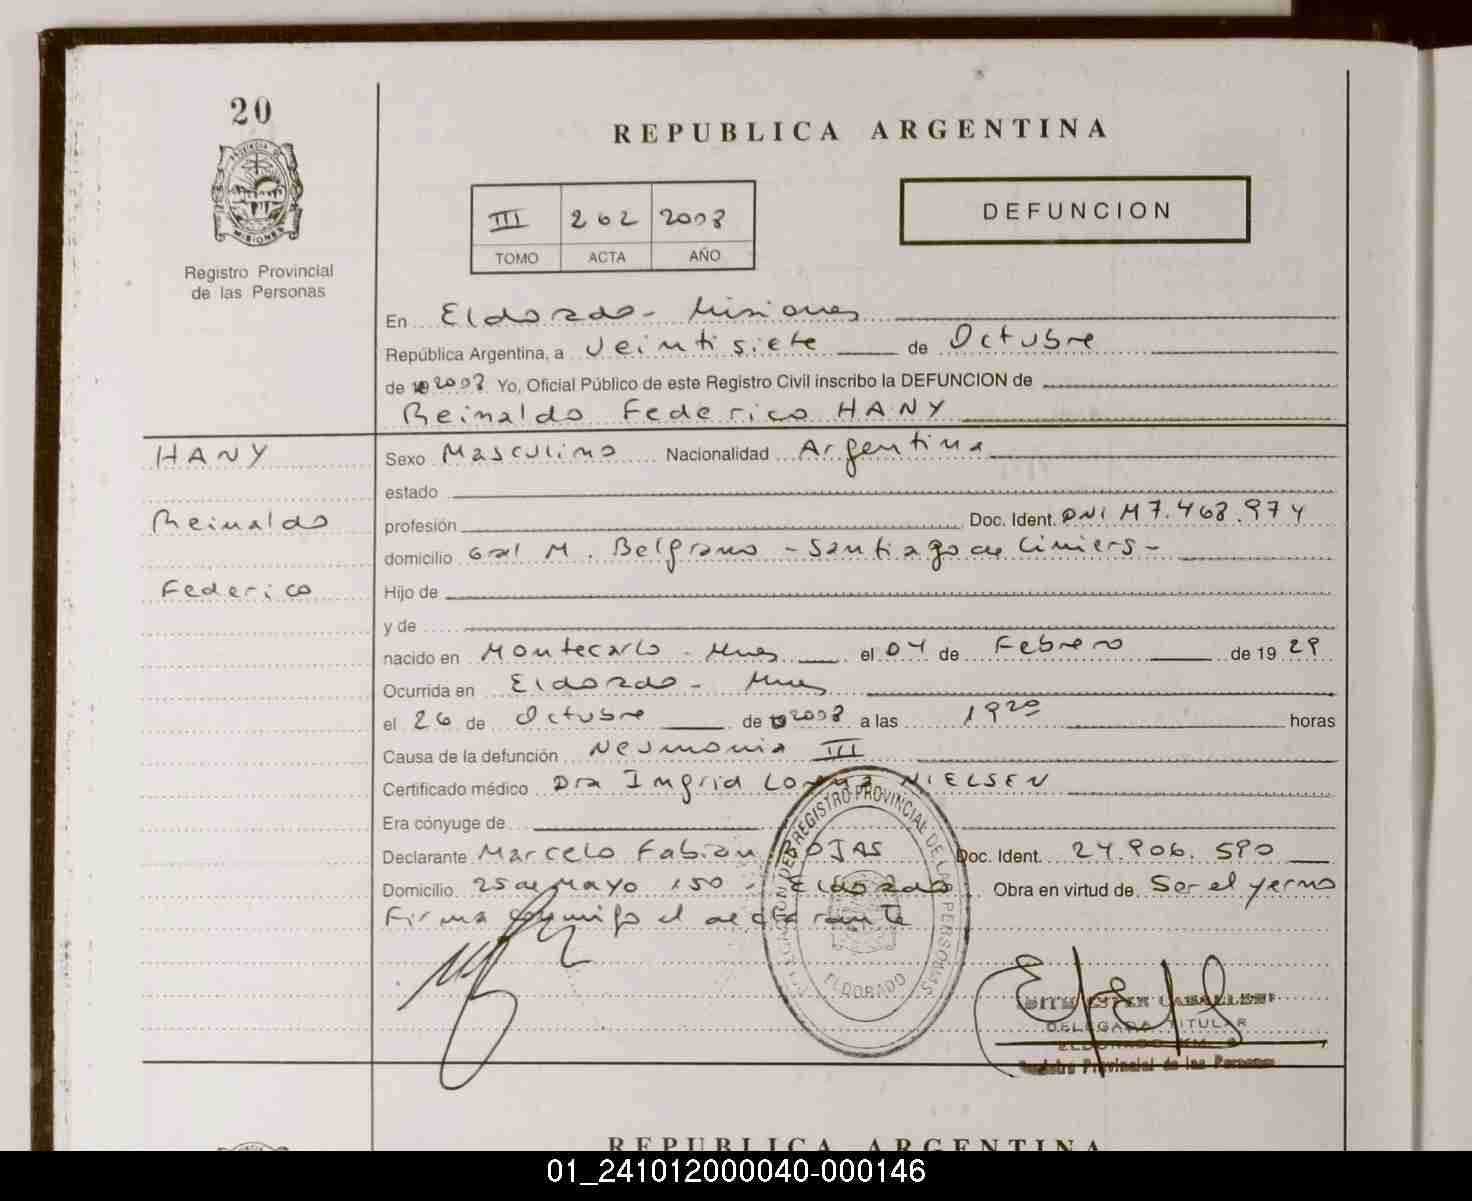 20
PROVINCIA DE
MISIONES
Registro Provincial
de las Personas
REPUBLICA ARGENTINA
III 262 2008
TOMO ACTA AÑO
DEFUNCION
En Eldorado - Misiones
República Argentina, a Veintisiete de Octubre
de 2008 Yo, Oficial Público de este Registro Civil inscribo la DEFUNCION de
Reinaldo Federico HANY
HANY
Reinaldo
Federico
Sexo Masculino Nacionalidad Argentina
estado
profesión Doc. Ident. DNI M7.468.974
domicilio Gral M. Belgrano - Santiago de Liniers -
Hijo de
y de
nacido en Montecarlo - Mnes el 04 de Febrero de 1929
Ocurrida en Eldorado - Mnes
el 26 de Octubre de 2008 a las 19 20 horas
Causa de la defunción Neumonia III
Certificado médico Dra Ingrid NIELSEN
Era cónyuge de
Declarante Marcelo Fabian ROJAS Doc. Ident. 24.906.590
Domicilio 25 de Mayo 150 - Eldorado Obra en virtud de Ser el yerno
Firma conmigo el declarante
DEL REGISTRO PROVINCIAL DE LAS PERSONAS
ELDORADO
DELEGADA TITULAR
ELDORADO KM.
Registro Provincial de las Personas
REPUBLICA ARGENTINA
01_241012000040-000146